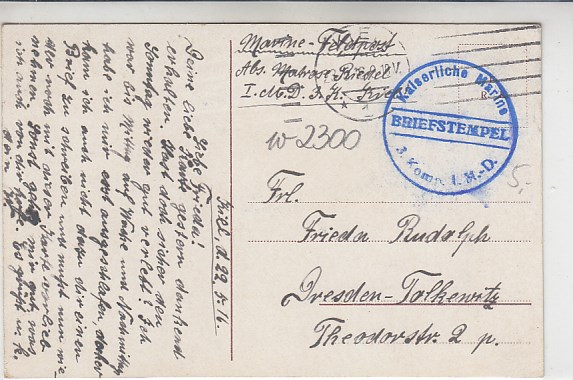 Marine-Feldpost
Abs. Matrose Riedel
I. M. D. 3. K. Kiel
Kaiserliche Marine
BRIEFSTEMPEL
3. Komp. I. M.-D.
w-2300
5,-
Frl.
Frieda Rudolph
Dresden-Tolkewitz
Theodorstr. 2 p.
Kiel, d. 22.5.16.
Liebe Frieda!
Deine liebe Karte gestern dankend
erhalten. Hast doch sicher den
Sonntag wieder gut verlebt? Ich
war bis Mittag auf Wache und Nachmittag
habe ich mir erst ausgeschlafen, daher
kann ich auch nicht dazu dir einen
Brief zu schreiben und mußt nun wie
der noch mit dieser Karte vorlieb
nehmen. Sonst geht mir gut, was
ich auch von dir hoffe. Es grüßt u. k.
Dein